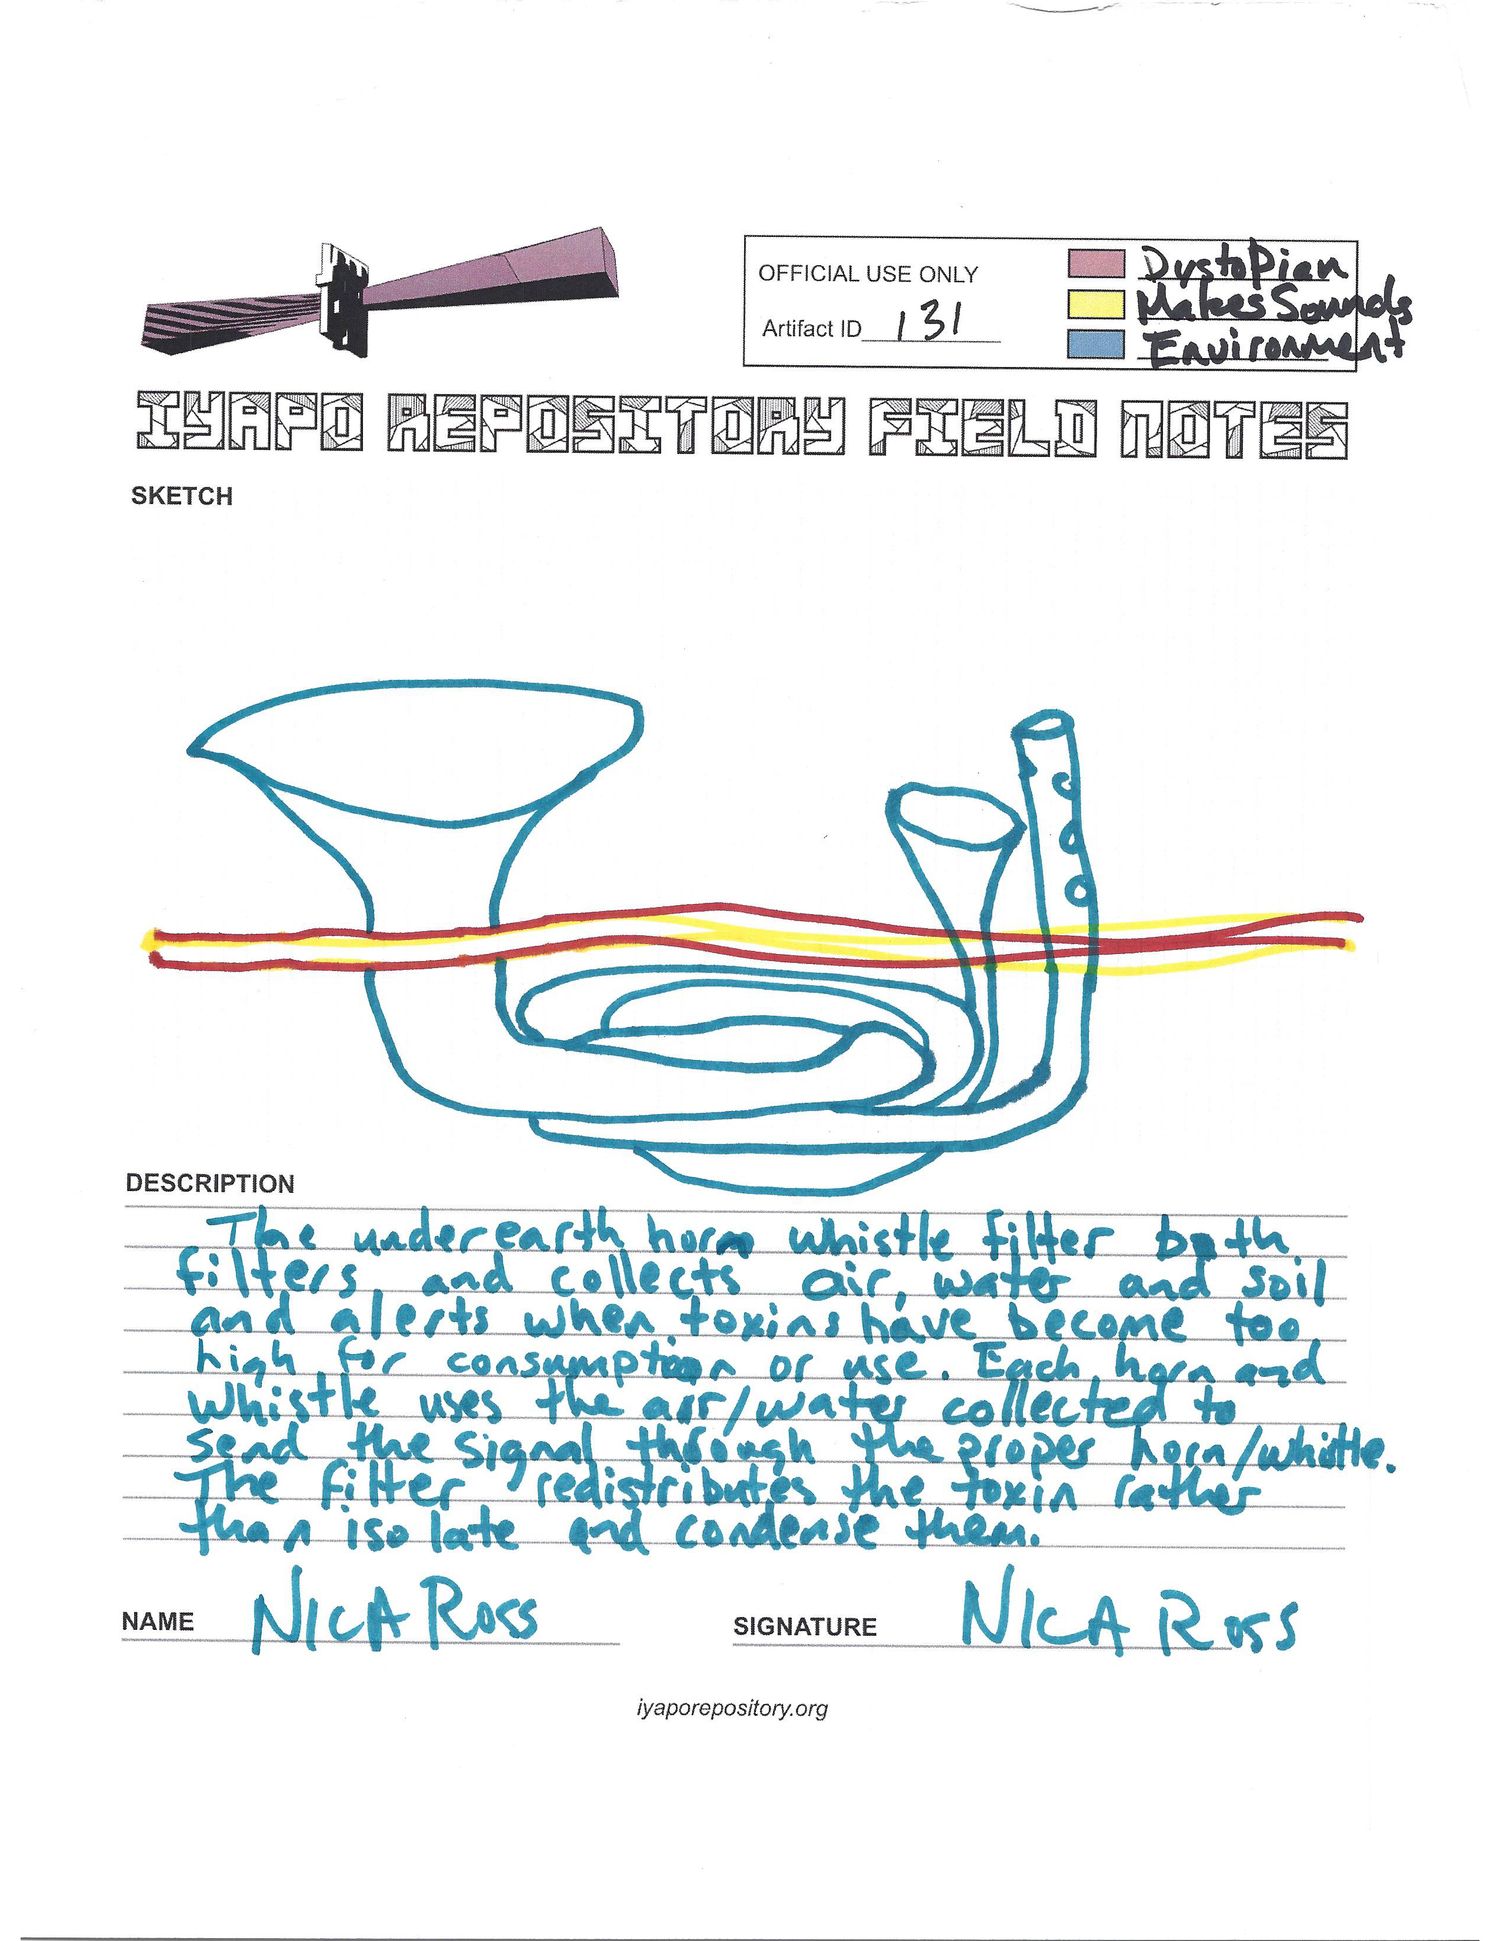 OFFICIAL USE ONLY
Artifact ID 131
Dystopian
Makes Sounds
Environment
IYAPO REPOSITORY FIELD NOTES
SKETCH
DESCRIPTION
The underearth horn whistle filter both
filters and collects air, water and soil
and alerts when toxins have become too
high for consumption or use. Each horn and
whistle uses the air/water collected to
send the signal through the proper horn/whistle.
The filter redistributes the toxin rather
than isolate and condense them.
NAME NICA ROSS
SIGNATURE NICA ROSS
iyaporepository.org